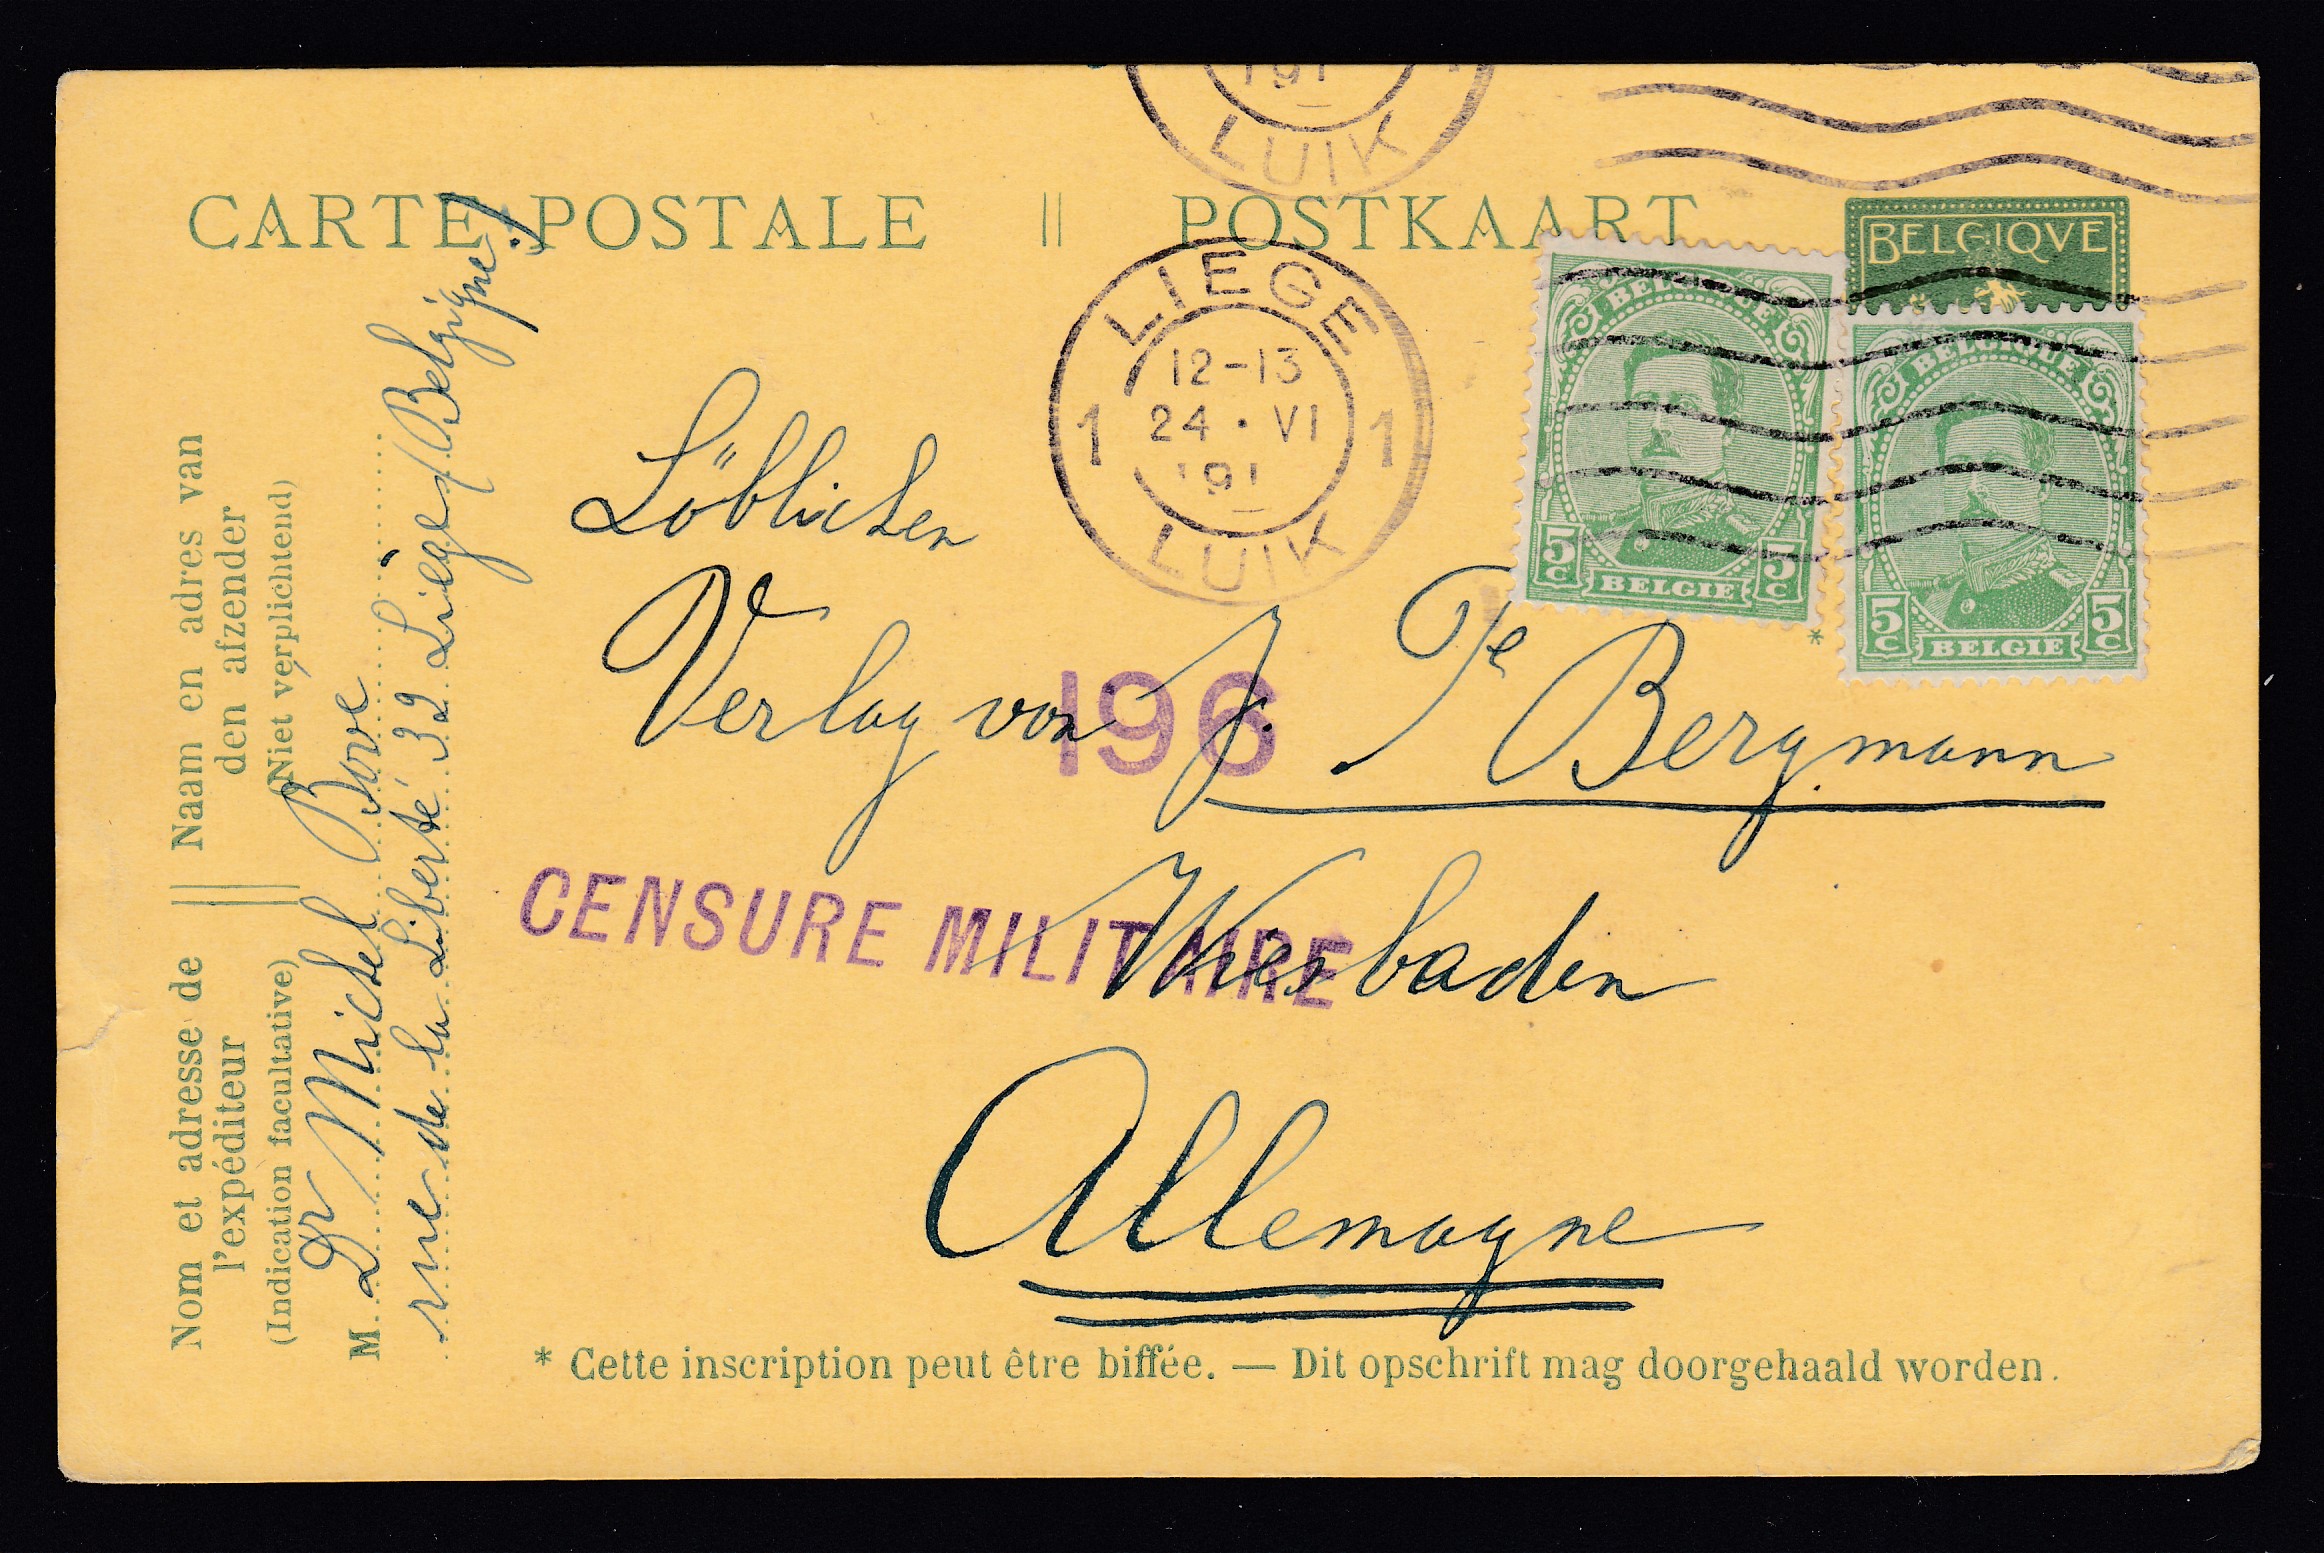 191
LUIK
CARTE POSTALE || POSTKAART
BELGIQVE
LIEGE
12-13
1 24 · VI 1
191
LUIK
BELGIQUE
5c BELGIE 5c
BELGIQUE
5c BELGIE 5c
*
Löblichen
Verlag von J. F. Bergmann
196
CENSURE MILITAIRE
Wiesbaden
Allemagne
* Cette inscription peut être biffée. — Dit opschrift mag doorgehaald worden.
Nom et adresse de || Naam en adres van
l'expéditeur den afzender
(Indication facultative) (Niet verplichtend)
M. Dr Michel Bove
rue de la Liberté 32 Liége (Belgique)